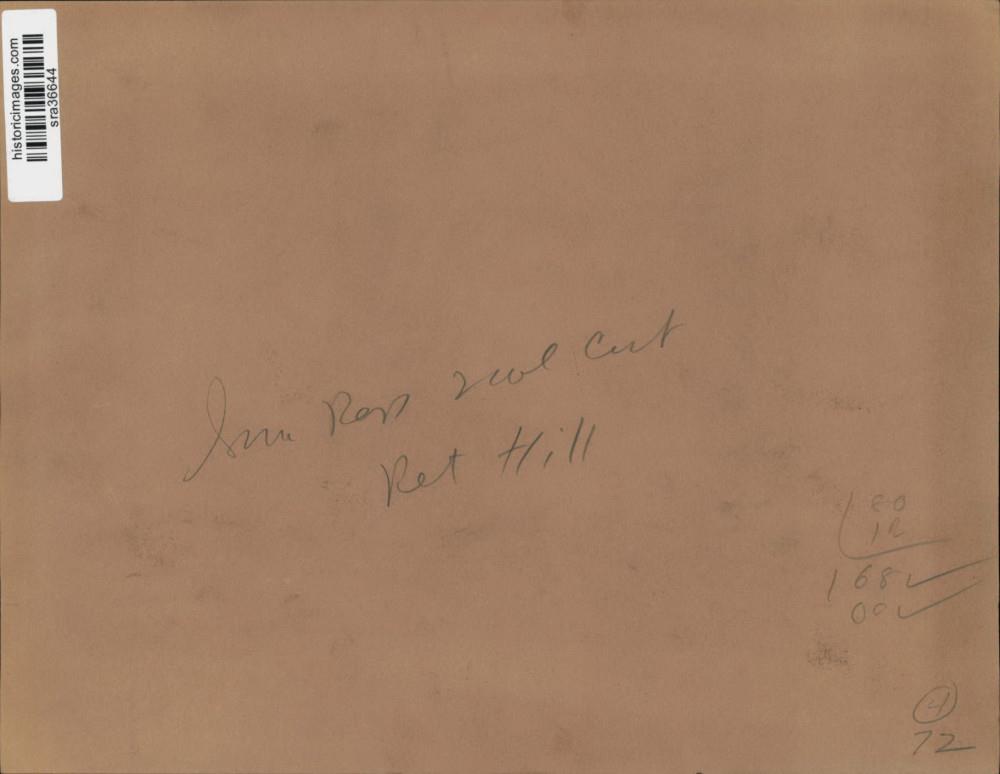 historicimages.com
sra36644
Sun Rep 2 col Cut
Ret Hill
80
12
168
00
4
72